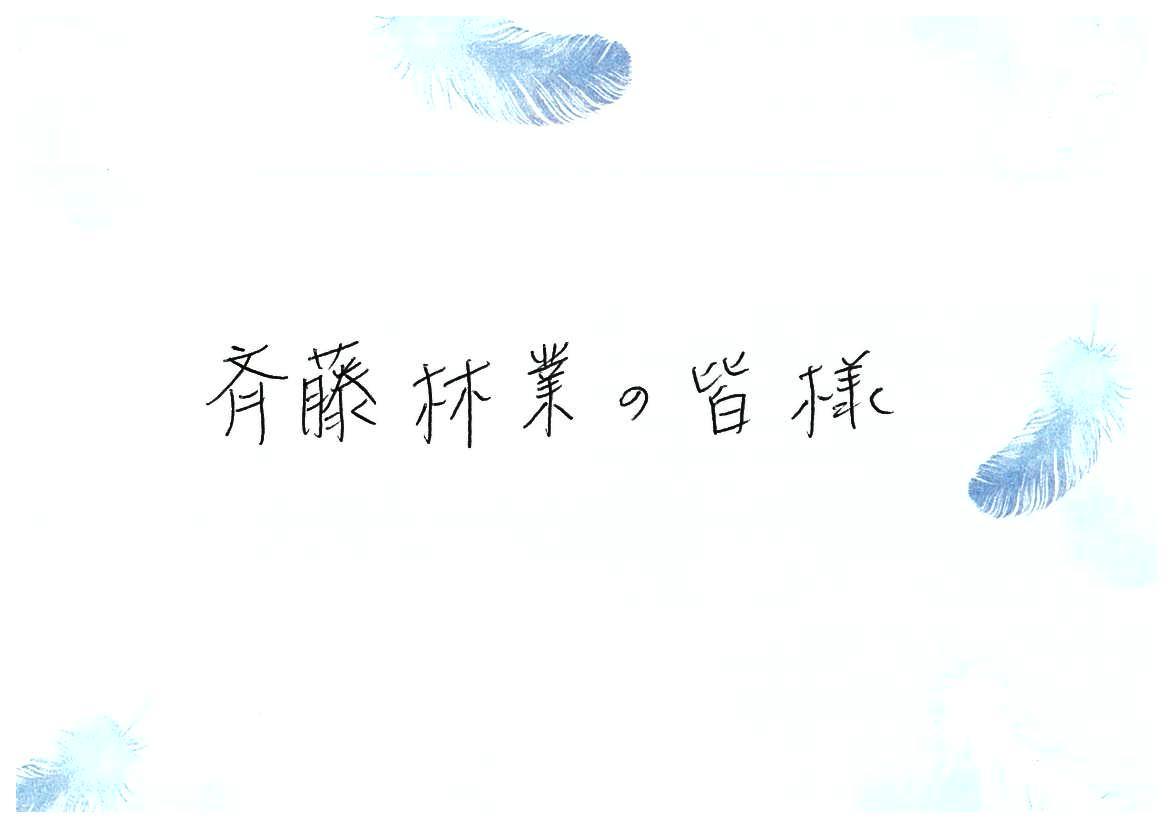 斉藤林業の皆様